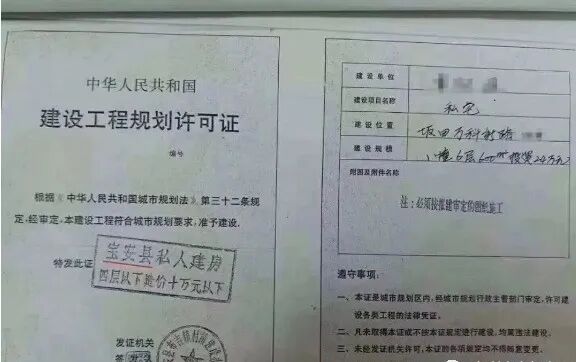 中华人民共和国
建设工程规划许可证
编号
根据《中华人民共和国城市规划法》第三十二条规
定,经审定,本建设工程符合城市规划要求,准予建设.
特发此证
宝安县私人建房
四层以下造价十万元以下
发证机关
建设单位
建设项目名称 私宅
建设位置 坂田万科新路
建设规模 1幢6层600㎡投资24万元
附图及附件名称
注:必须按报建审定的图纸施工
遵守事项:
一、本证是城市规划区内,经城市规划行政主管部门审定,许可建
设各类工程的法律凭证。
二、凡未取得本证或不按本证规定进行建设,均属违法建设。
三、未经发证机关许可,本证的各项规定均不得随意变更.